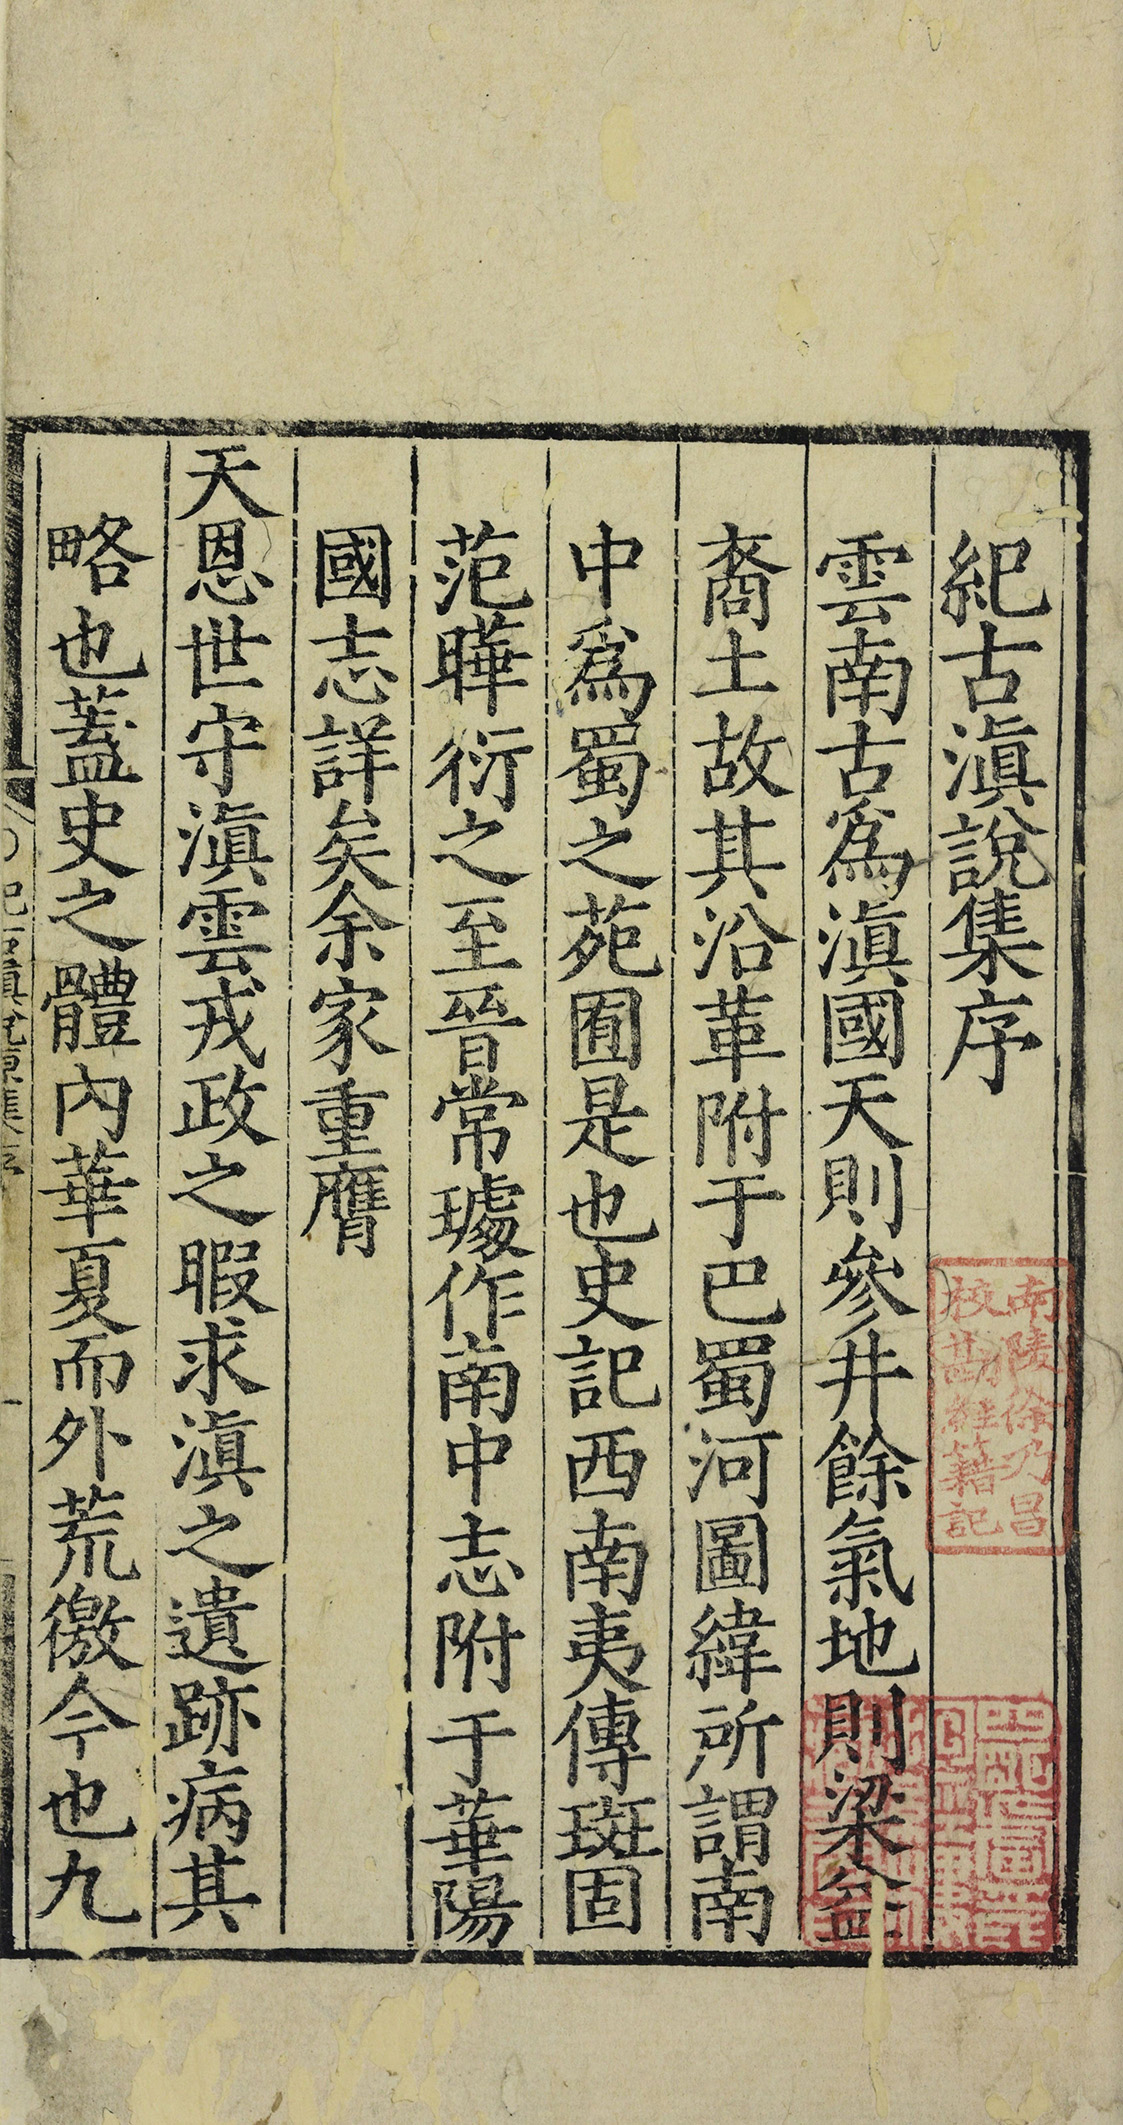 紀古滇說集序
雲南古爲滇國天則參井餘氣地則梁益
裔土故其沿革附于巴蜀河圖緯所謂南
中爲蜀之苑囿是也史記西南夷傳斑固
范曄衍之至晉常璩作南中志附于華陽
國志詳矣余家重膺
天恩世守滇雲戎政之暇求滇之遺跡病其
略也蓋史之體內華夏而外荒徼今也九
南陵徐乃昌
校勘經籍記